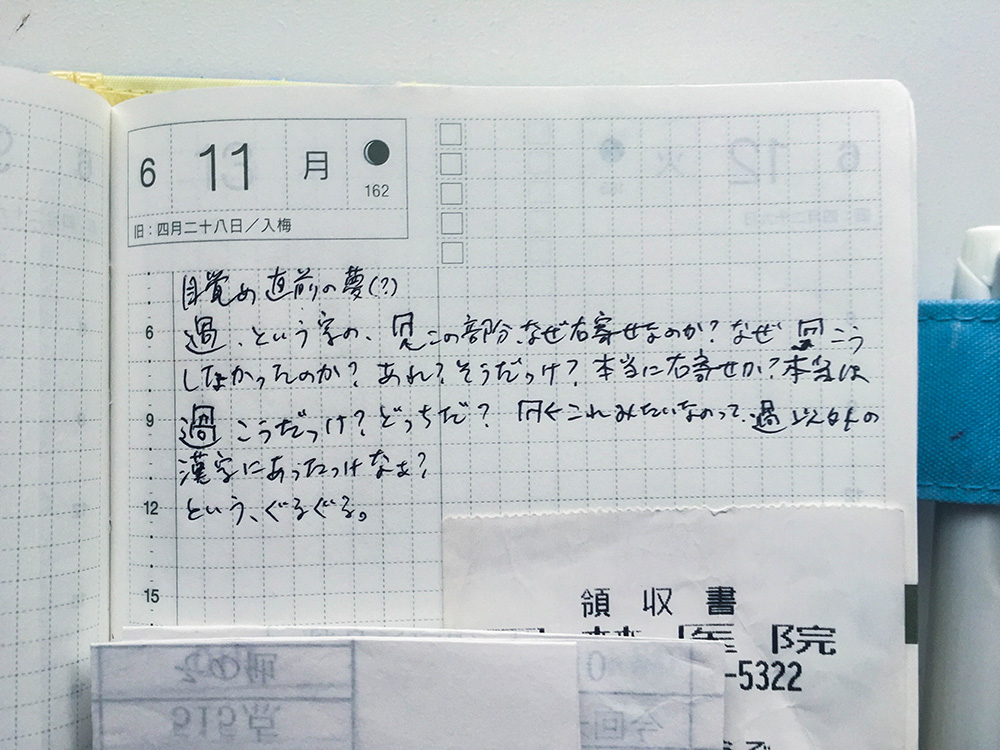 6 11 月
162
旧：四月二十八日／入梅
目覚め直前の夢(？)
過、という字の、冎この部分、なぜ右寄せなのか？なぜ こう
しなかったのか？あれ？そうだっけ？本当に右寄せか？本当は
過 こうだっけ？どっちだ？ ←これみたいなのって、過以外の
漢字にあったっけなぁ？
という、ぐるぐる。
6
9
12
15
領収書
医院
-5322